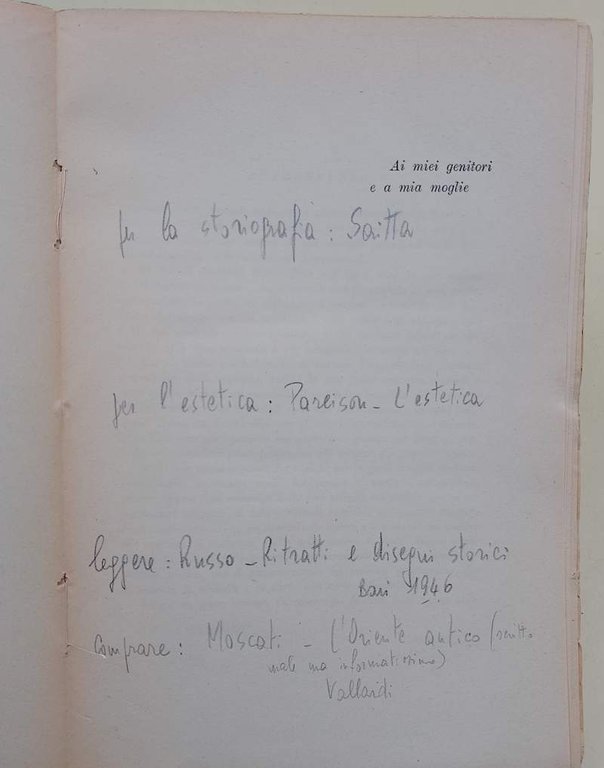 Ai miei genitori
e a mia moglie
per la storiografia : Saitta
per l'estetica : Pareison - L'estetica
leggere : Russo - Ritratti e disegni storici
Bari 1946
Comprare : Moscati - L'Oriente antico (scritto
male ma informatissimo)
Vallardi